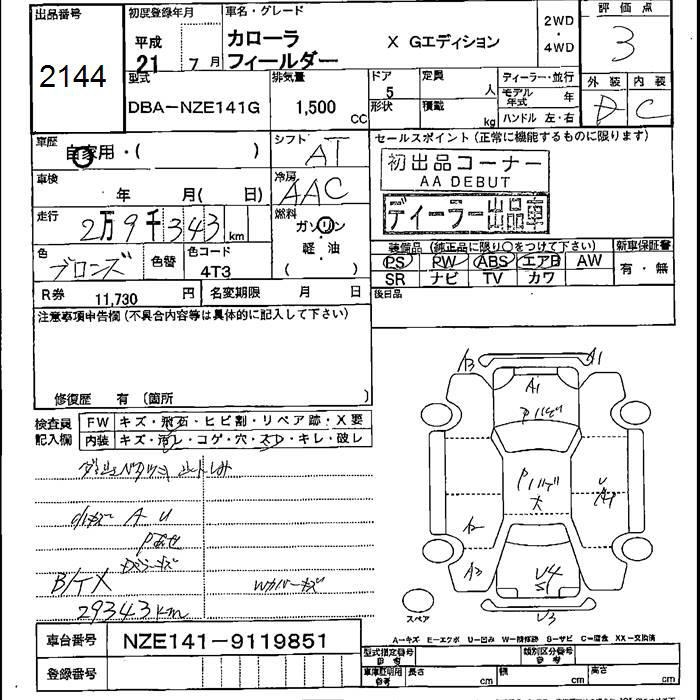 出品番号 初度登録年月 車名・グレード 評価点
平成 21 7月 カローラ フィールダー X Gエディション 2WD・4WD 3
2144
型式 排気量 ドア 定員 ディーラー・並行 外装 内装
DBA-NZE141G 1,500 CC 5 人 モデル年式 年 D C
形状 積載 kg ハンドル 左・右
車歴 自家用・( ) シフト AT セールスポイント (正常に機能するものに限ります)
初出品コーナー
AA DEBUT
車検 年 月( 日) 冷房 AAC
ディーラー出品車
走行 2万9千343km 燃料 ガソリン・軽油 ( )
装備品 (純正品に限り○をつけて下さい) 新車保証書
色 ブロンズ 色替 色コード 4T3
PS PW ABS エアB AW 有・無
SR ナビ TV カワ
R券 11,730 円 名変期限 月 日 後日品
注意事項申告欄 (不具合内容等は具体的に記入して下さい)
修復歴 有 (箇所 )
検査員記入欄 FW キズ・飛石・ヒビ割・リペア跡・X要
内装 キズ・汚レ・コゲ・穴・スレ・キレ・破レ
A3 A1
A1
A2
A3 U4
S1
U3
小キズ A U
B/T X
29343km
Wカバーキズ
スペア
A-キズ E-エクボ U-凹み W-補修跡 S-サビ C-腐食 XX-交換済
車台番号 NZE141-9119851
型式指定番号 参考 類別区分番号 参考
登録番号 車庫証明用 参考 長さ cm 幅 cm 高さ cm